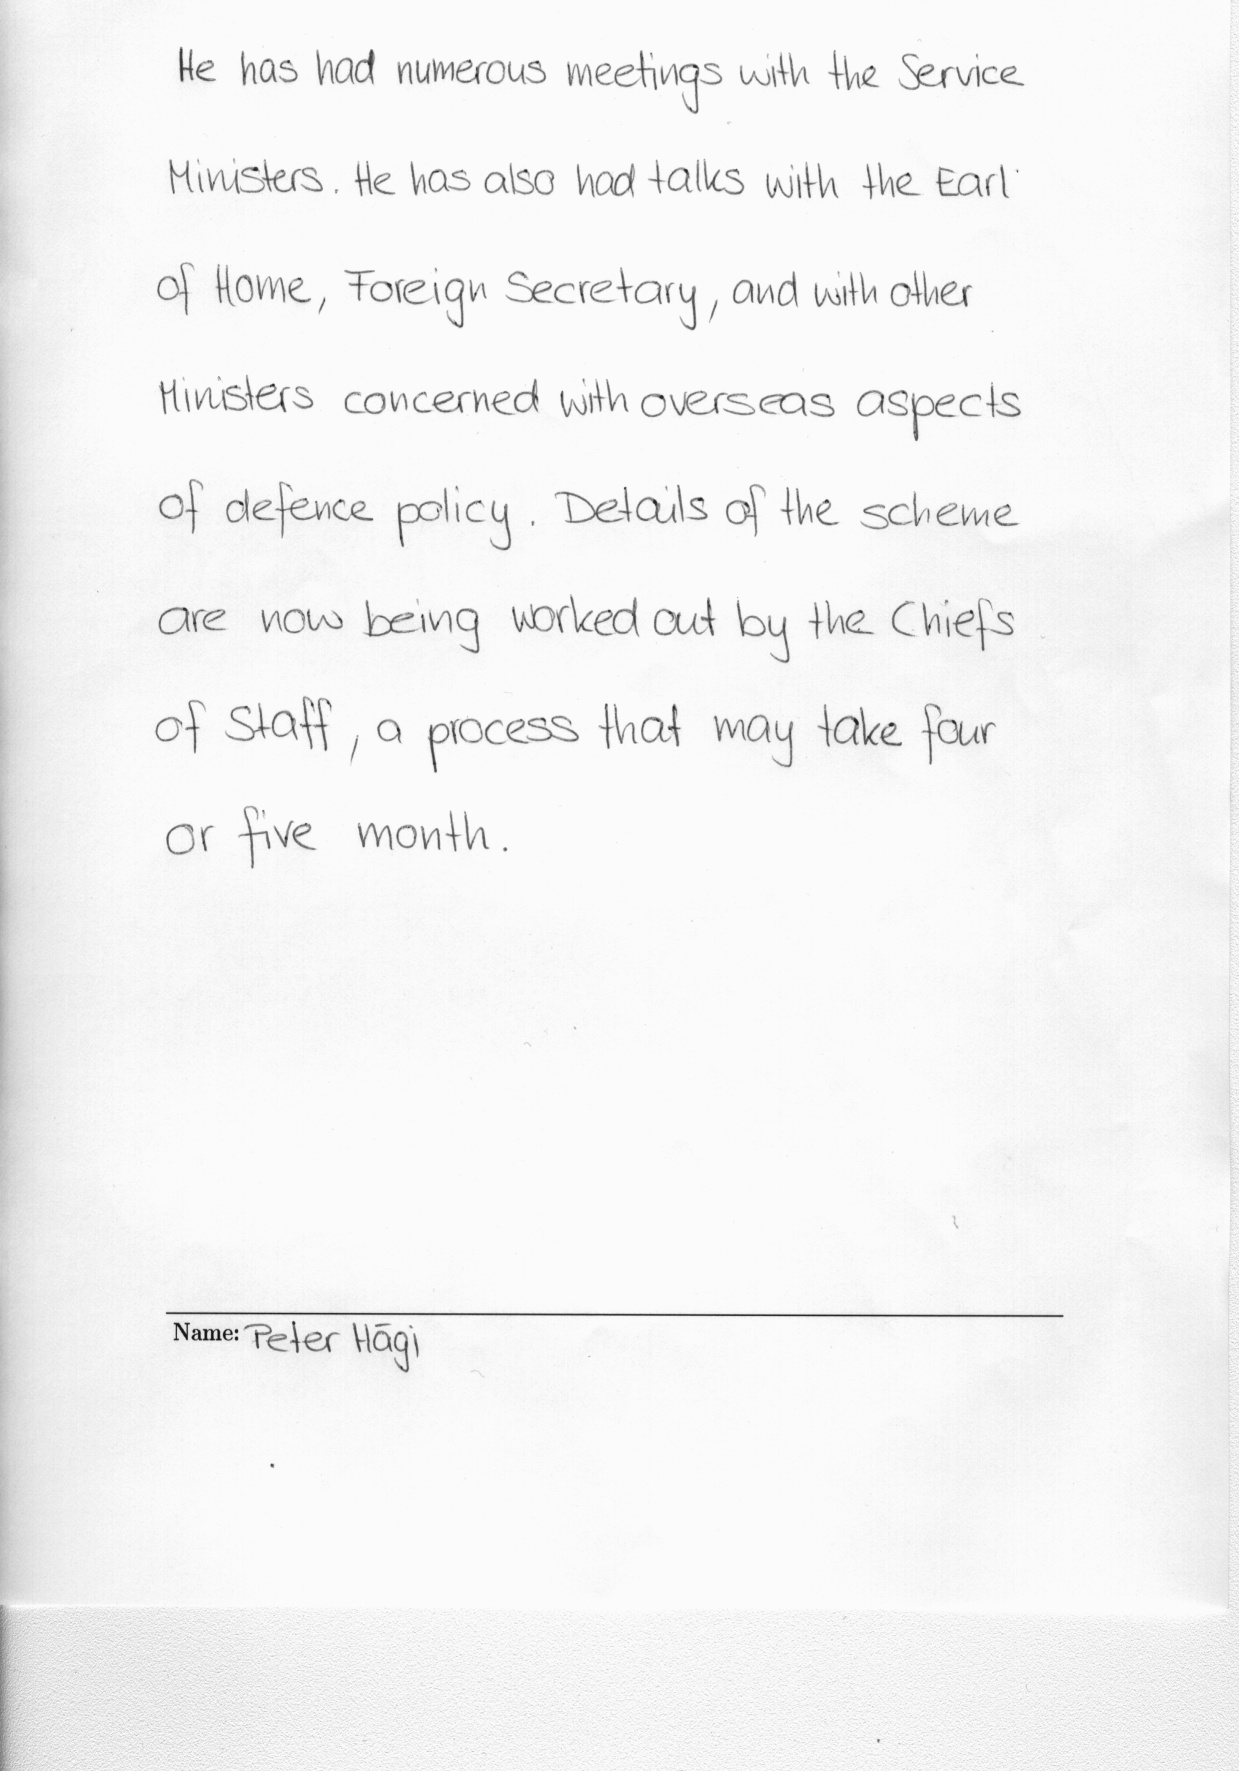 He has had numerous meetings with the Service
Ministers. He has also had talks with the Earl
of Home, Foreign Secretary, and with other
Ministers concerned with overseas aspects
of defence policy. Details of the scheme
are now being worked out by the Chiefs
of Staff, a process that may take four
or five month.
Name: Peter Hāgi